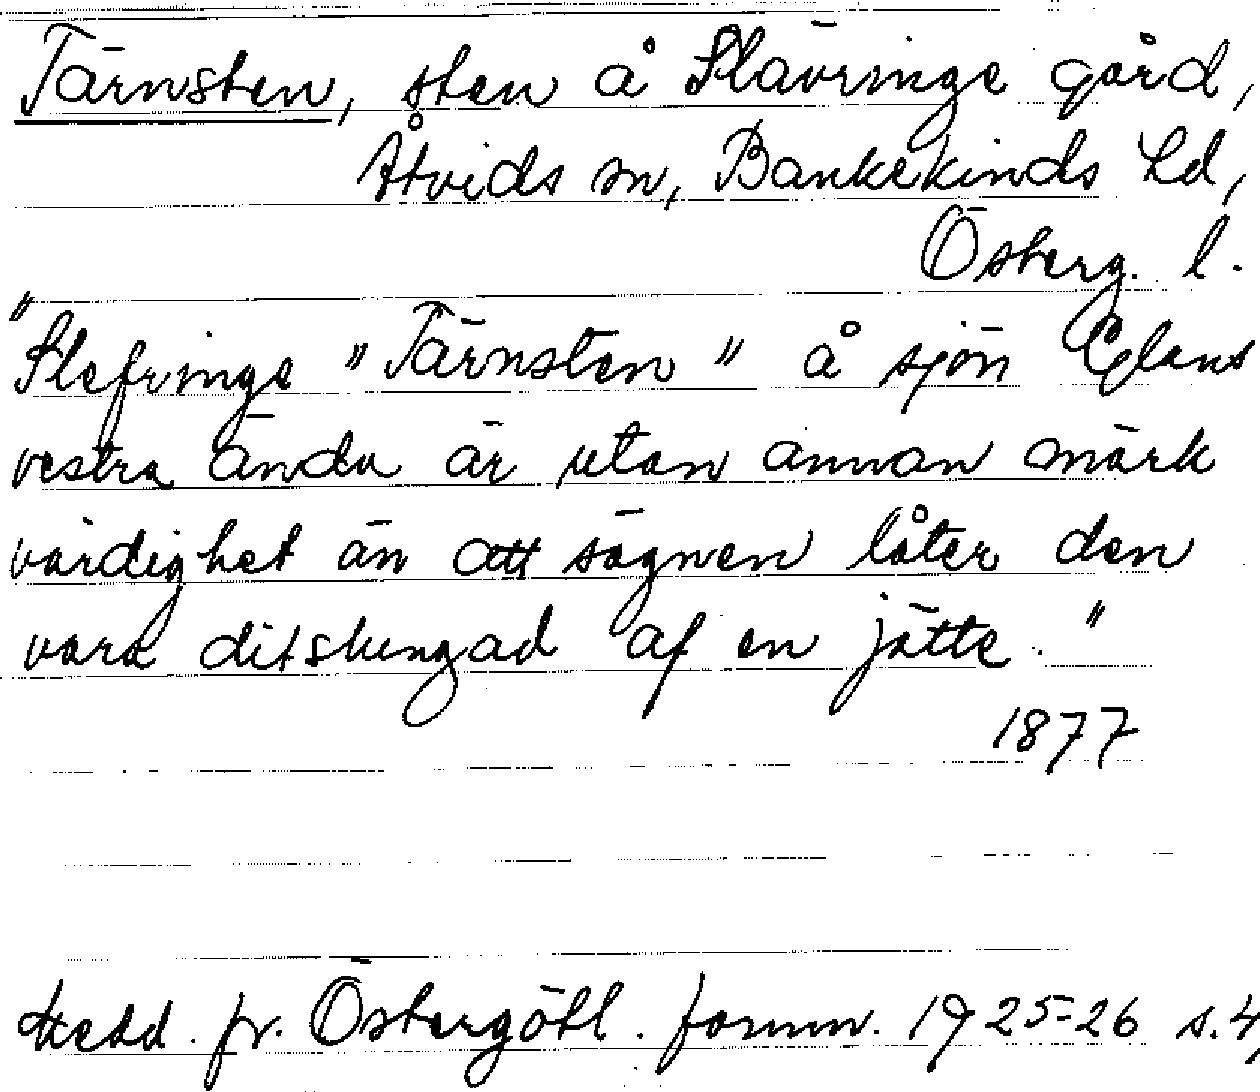 Tärnsten, sten å Slävringe gård,
Åtvids sn, Bankekinds hd,
Österg. l.
"Slefringe "Tärnsten" å sjön Glans
vestra ända är utan annan märk
värdighet än att sägnen låter den
vara ditslungad af en jätte."
1877
Medd. fr. Östergötl. fornm. 1925-26 s. 4